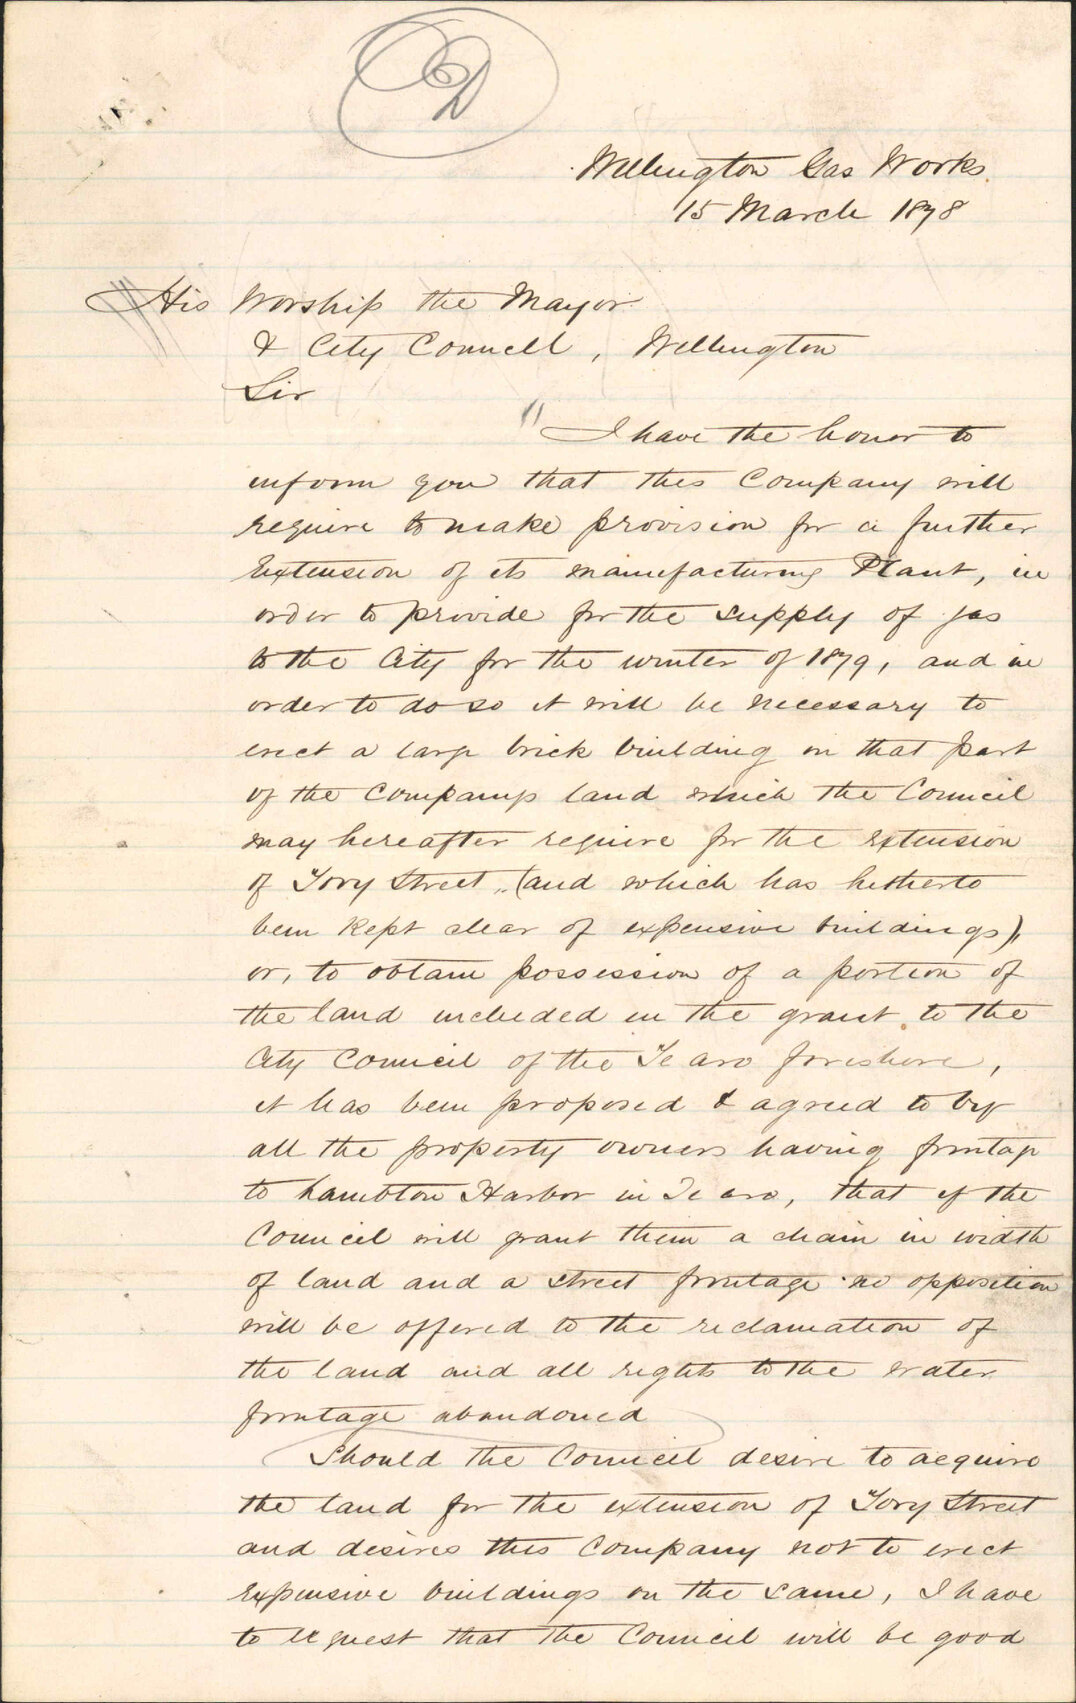 D
Wellington Gas Works.
15 March 1878
His Worship the Mayor
& City Council, Wellington
Sir
"I have the honor to
inform you that this Company will
require to make provision for a further
Extension of its manufacturing Plant, in
order to provide for the supply of gas
to the City for the winter of 1879, and in
order to do so it will be necessary to
erect a large brick building on that part
of the Companys land which the Council
may hereafter require for the extension
of Tory Street, (and which has hitherto
been kept clear of expensive buildings),
or, to obtain possession of a portion of
the land included in the grant to the
City Council of the Te aro foreshore,
it has been proposed & agreed to by
all the property owners having frontage
to Lambton Harbor in Te aro, that if the
Council will grant them a chain in width
of land and a street frontage no opposition
will be offered to the reclamation of
the land and all rights to the water
frontage abandoned
Should the Council desire to acquire
the land for the extension of Tory Street
and desires this Company not to erect
expensive buildings on the same, I have
to request that the Council will be good